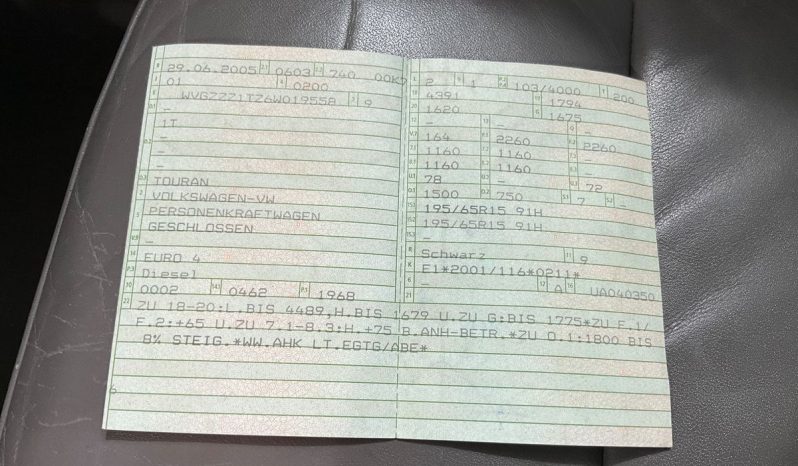 29.06.2005 0603 740 00K
01 0200
WVGZZZ1TZ6W019558 9
-
1T
-
-
-
TOURAN
VOLKSWAGEN-VW
PERSONENKRAFTWAGEN
GESCHLOSSEN
-
EURO 4
Diesel
0002 0462 1968
2 1 103/4000 200
4391 1794
1620 1675
- - -
164 2260 2260
1160 1160 -
1160 1160 -
78 - 72
1500 750 7 -
195/65R15 91H
195/65R15 91H
-
Schwarz 9
E1*2001/116*0211*
- A UA040350
ZU 18-20:L.BIS 4489,H.BIS 1679 U.ZU G:BIS 1775*ZU F.1/
F.2:+65 U.ZU 7.1-8.3:H.+75 B.ANH-BETR.*ZU O.1:1800 BIS
8% STEIG.*WW.AHK LT.EGTG/ABE*